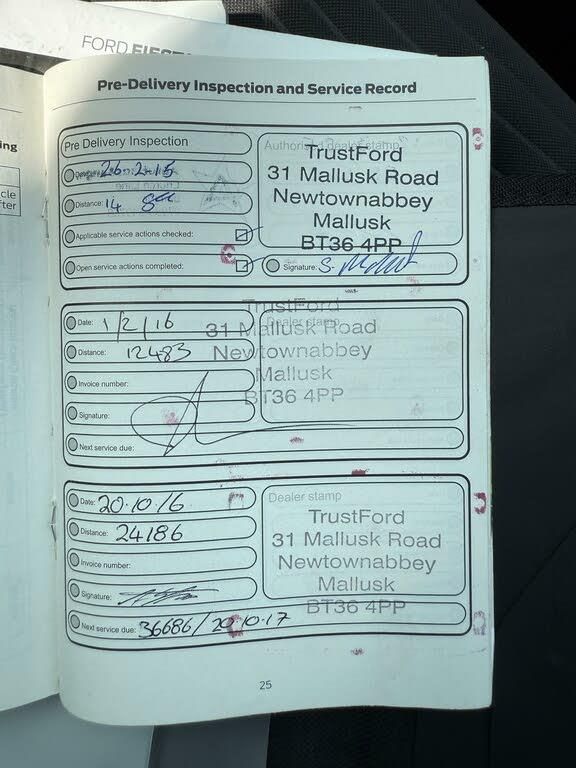 FORD FIESTA
ing
cle
fter
Pre-Delivery Inspection and Service Record
Pre Delivery Inspection
26-2-15
Distance: 14
Applicable service actions checked:
Open service actions completed:
Authorised dealer stamp
TrustFord
31 Mallusk Road
Newtownabbey
Mallusk
BT36 4PP
Signature:
Date: 1/2/16
Distance: 12483
Invoice number:
Signature:
Next service due:
Dealer stamp
TrustFord
31 Mallusk Road
Newtownabbey
Mallusk
BT36 4PP
Date: 20.10.16
Distance: 24186
Invoice number:
Signature:
Next service due: 36686/20.10.17
Dealer stamp
TrustFord
31 Mallusk Road
Newtownabbey
Mallusk
BT36 4PP
25